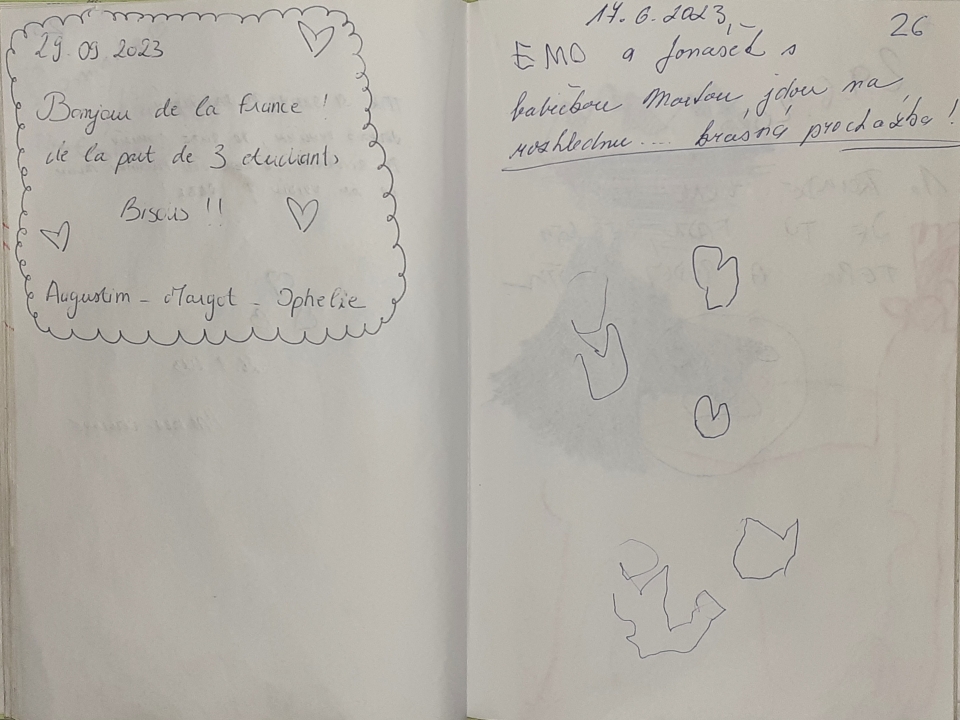 29.09.2023
Bonjour de la France !
de la part de 3 étudiants
Bisous !!
Augustin - Margot - Ophélie
26
17.6.2023,-
EMO a Jonášek s
babičkou Martou jdou na
rozhlednu .... krásná procházka !